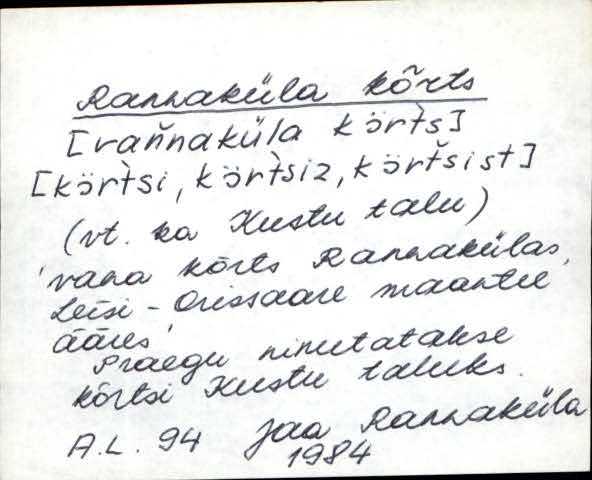 Rannaküla kõrts
[vañnaküla kör̀ts]
[kör̀tsi, kör̀tsiz, kör̆tsist]
(vt. ka Kustu talu)
'vana kõrts Rannakülas,
Leisi - Orissaare maantee
ääres'
Praegu nimetatakse
kõrtsi Kustu taluks.
A.L. 94 Jaa Rannaküla
1984